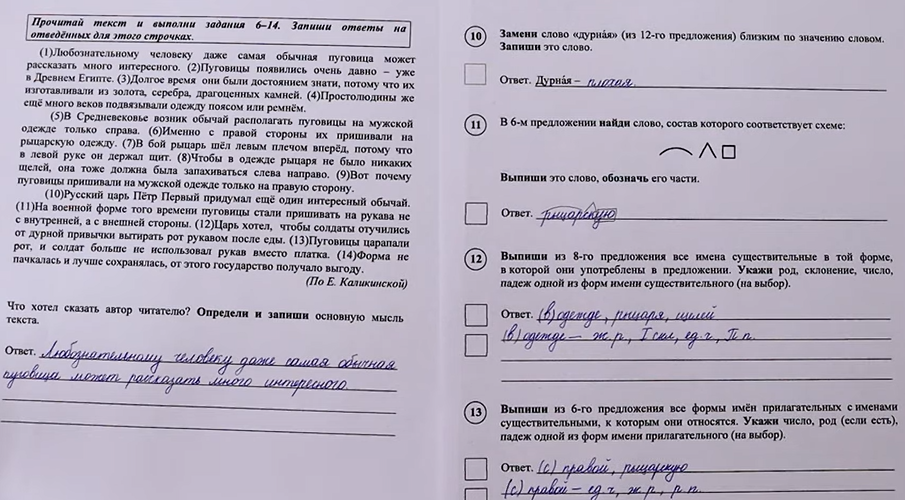 Прочитай текст и выполни задания 6–14. Запиши ответы на
отведённых для этого строчках.
(1)Любознательному человеку даже самая обычная пуговица может
рассказать много интересного. (2)Пуговицы появились очень давно – уже
в Древнем Египте. (3)Долгое время они были достоянием знати, потому что их
изготавливали из золота, серебра, драгоценных камней. (4)Простолюдины же
ещё много веков подвязывали одежду поясом или ремнём.
(5)В Средневековье возник обычай располагать пуговицы на мужской
одежде только справа. (6)Именно с правой стороны их пришивали на
рыцарскую одежду. (7)В бой рыцарь шёл левым плечом вперёд, потому что
в левой руке он держал щит. (8)Чтобы в одежде рыцаря не было никаких
щелей, она тоже должна была запахиваться слева направо. (9)Вот почему
пуговицы пришивали на мужской одежде только на правую сторону.
(10)Русский царь Пётр Первый придумал ещё один интересный обычай.
(11)На военной форме того времени пуговицы стали пришивать на рукава не
с внутренней, а с внешней стороны. (12)Царь хотел, чтобы солдаты отучились
от дурной привычки вытирать рот рукавом после еды. (13)Пуговицы царапали
рот, и солдат больше не использовал рукав вместо платка. (14)Форма не
пачкалась и лучше сохранялась, от этого государство получало выгоду.
(По Е. Каликинской)
Что хотел сказать автор читателю? Определи и запиши основную мысль
текста.
Ответ. Любознательному человеку даже самая обычная
пуговица может рассказать много интересного
10 Замени слово «дурна́я» (из 12-го предложения) близким по значению словом.
Запиши это слово.
Ответ. Дурна́я – плохая.
11 В 6-м предложении найди слово, состав которого соответствует схеме:
Выпиши это слово, обозначь его части.
Ответ. рыцарскую
12 Выпиши из 8-го предложения все имена существительные в той форме,
в которой они употреблены в предложении. Укажи род, склонение, число,
падеж одной из форм имени существительного (на выбор).
Ответ. (в) одежде, рыцаря, щелей
(в) одежде – ж.р., I скл, ед.ч, П.п.
13 Выпиши из 6-го предложения все формы имён прилагательных с именами
существительными, к которым они относятся. Укажи число, род (если есть),
падеж одной из форм имени прилагательного (на выбор).
Ответ. (с) правой, рыцарскую
(с) правой – ед.ч, ж.р., р.п.